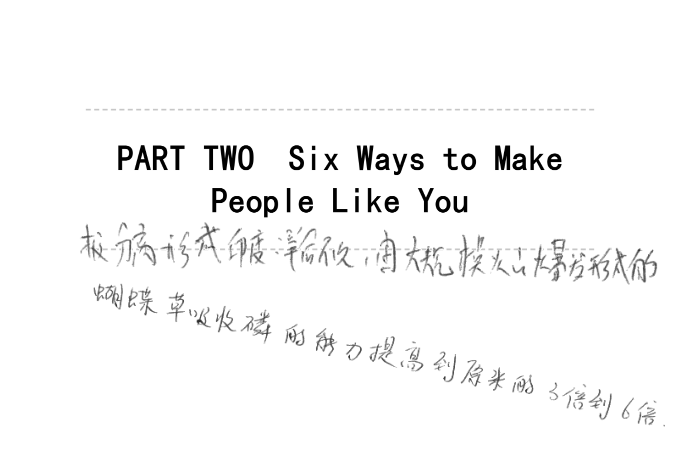 PART TWO Six Ways to Make
People Like You
板分离形成印度洋后不久,由大规模火山爆发形成的
蝴蝶草吸收磷的能力提高到原来的3倍到6倍.